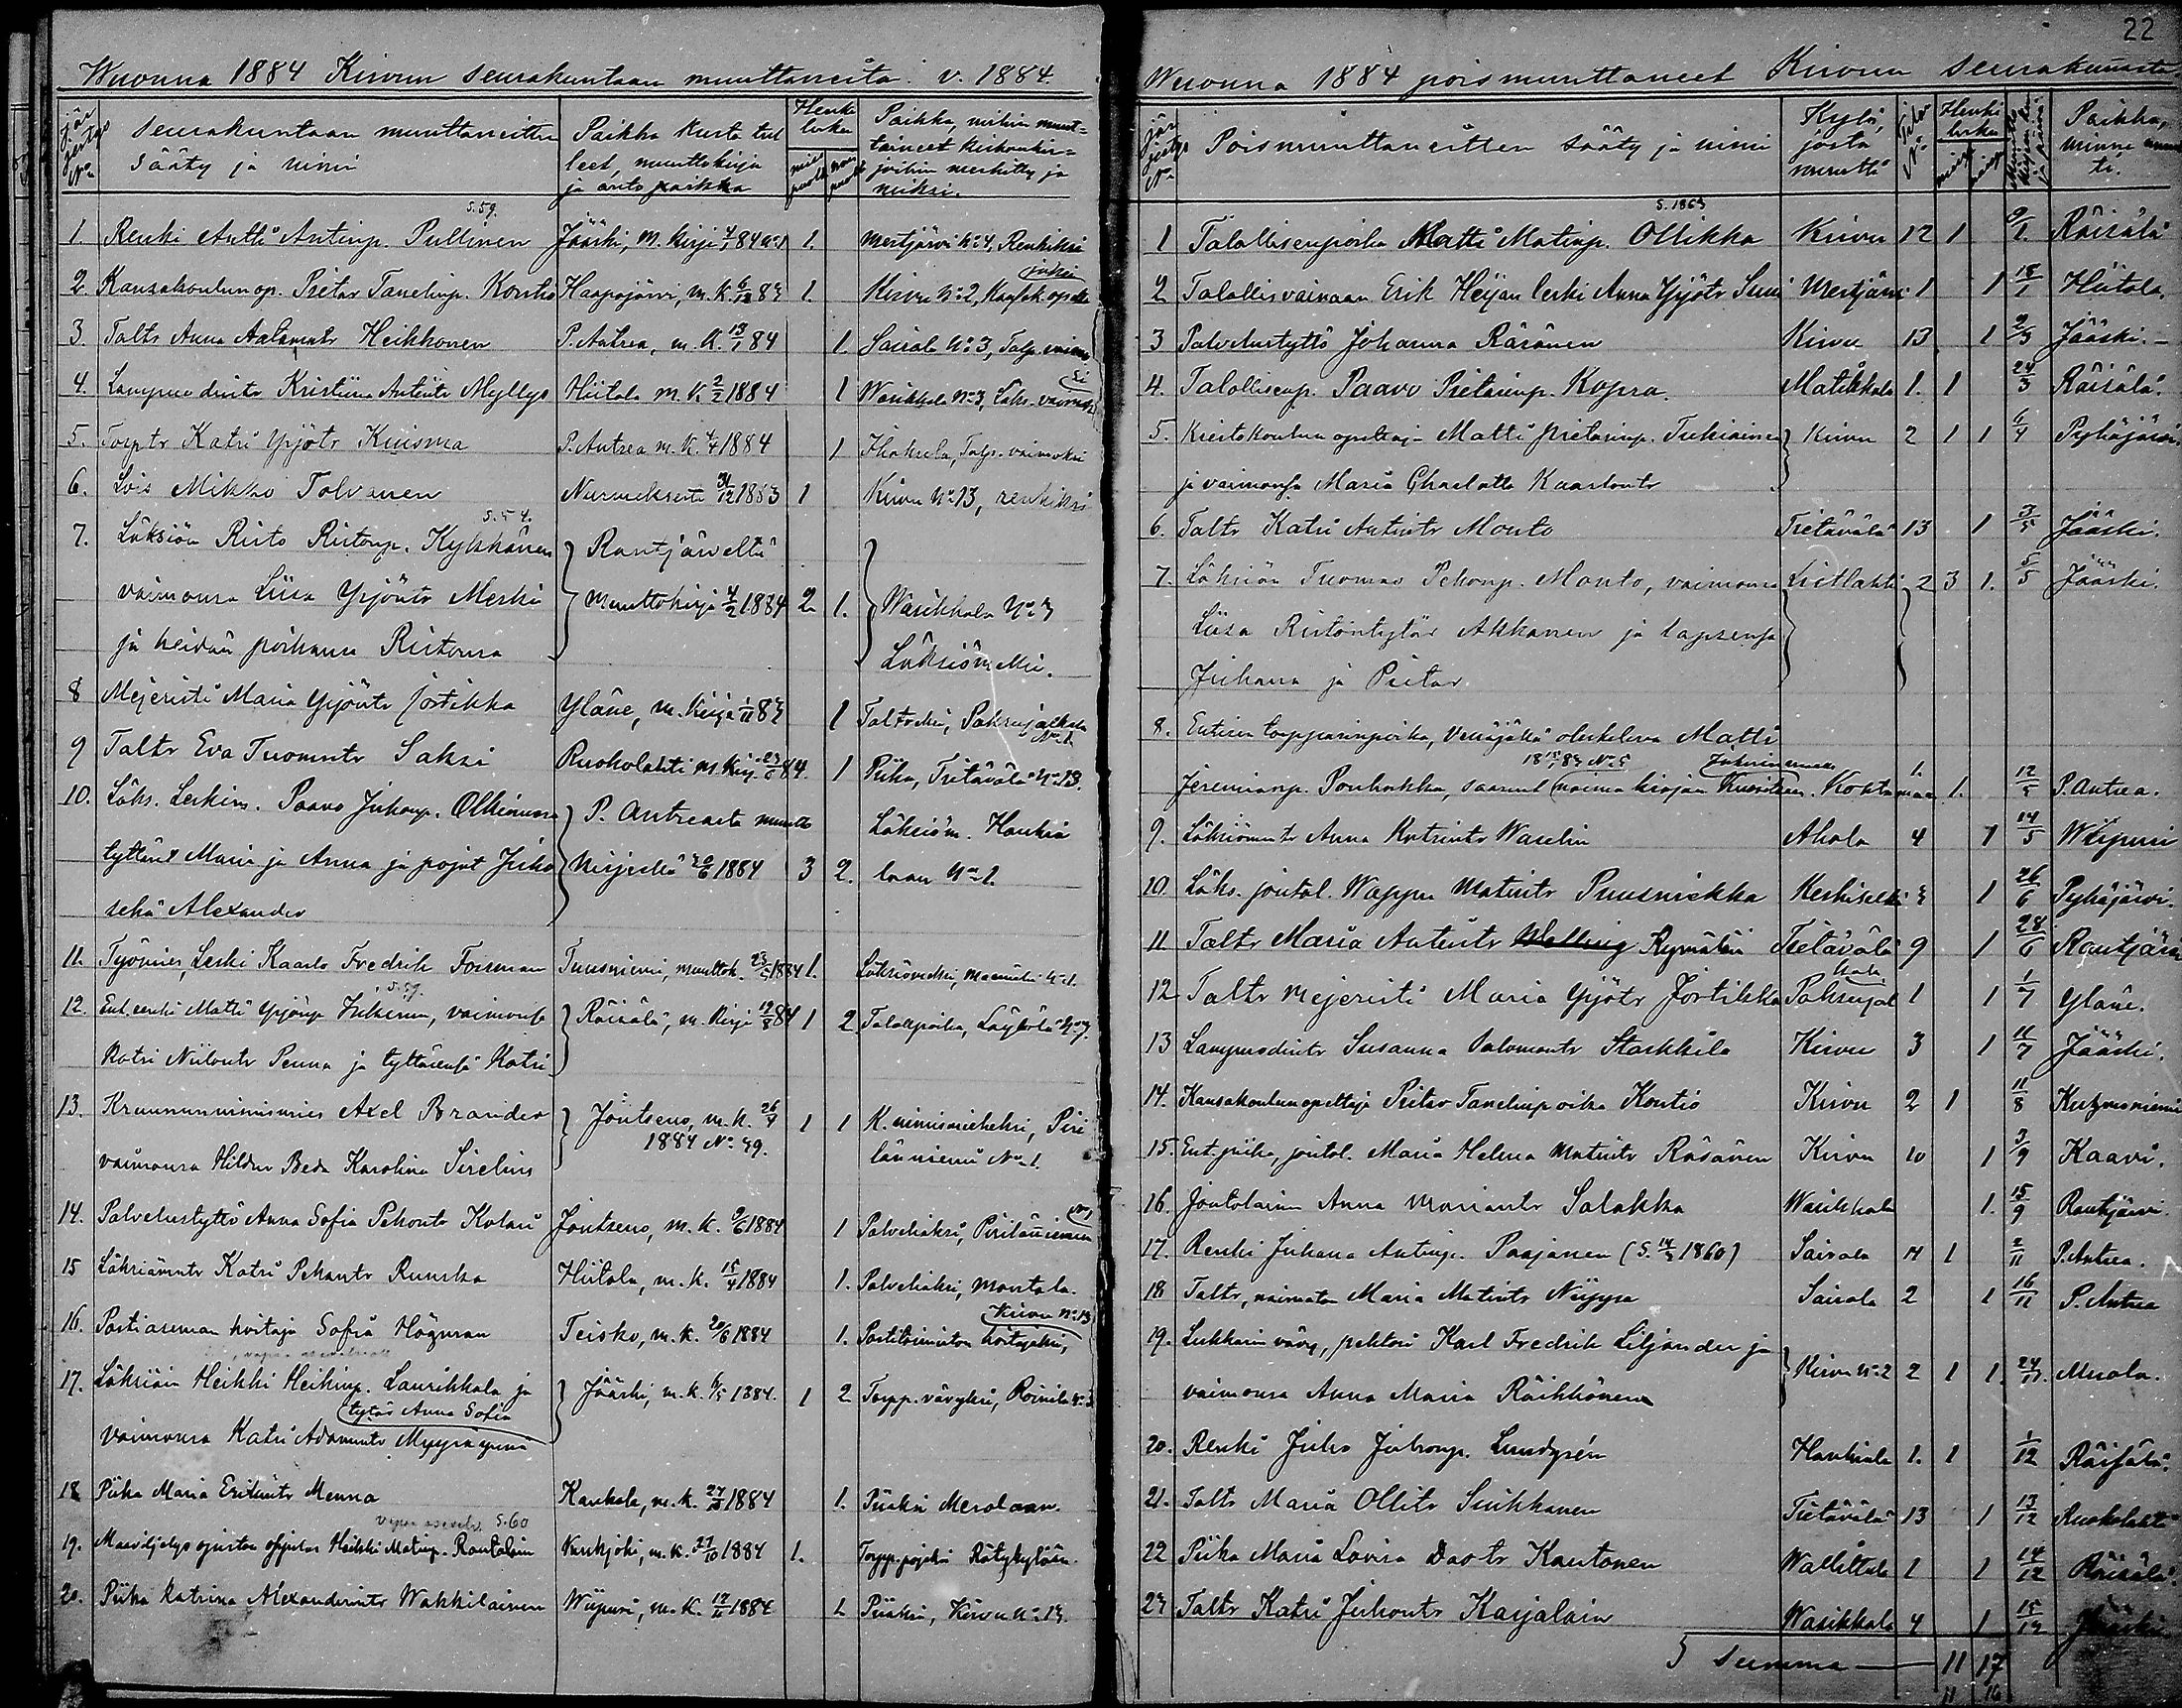 22
Wuonna 1884 Kirvun seurakuntaan muuttaneita v. 1884.
jär jestys No
Seurakuntaan muuttaneitten sääty ja nimi
Paikka kusta tulleet, muuttokirja ja anto paikka
Henki luku
mies puoli
Paikka, mihin muuttaneet
1. Renki Antti Antinp. Pullinen s. 59. Jääski, m. kirja 84 No 1 1. Mertjärvi No 4, Renkiksi
2. Kansakoulun op. Pietar Tanelinp. Kontio Haapajärvi, m. K. 83 1. Kirvu No 2, Kansk. opett
3. Taltr Anna Aatamntr Heikkonen P. Antrea, m. K. 13/1 84 1. Sairala No 3, Talp. vaimo
4. Kristiina Antintr Myllys Hiitola m. K. 2/2 1884 1 Wasikkala No 3, Läks. vaimoksi
5. Torptr Katri Yrjötr Kuisma P. Antrea m. K. 1884 1 Ihaksela, Talp. vaimoksi
6. Lois Mikko Tolvanen 31/12 1883 1 Kirvu No 13, rengiksi
7. Läksiän Risto Ristonp. Kylkkänen s. 54.
vaimonsa Liisa Yrjöntr Meski
ja heidän poikansa Ristonsa
Rautjärveltä
Muuttokirja 4/2 1884 2. 1. Wasikkala No 3
Läksiömeksi.
8 Mejeristi Maria Yrjöntr Jortikka Yläne, m. Kirja 1/11 83 1 Taltreksi, Paksujalkala No 1.
9 Taltr Eva Tuomntr Saksi Ruokolahti m. Kirj. 84. 1 Piika, Tietävälä No 13.
10. Läks. Leskim. Paavo Juhonp. Ollikainen
tyttäret Maria ja Anna ja pojat Juho
sekä Alexander
P. Antreasta muutto
kirjalla 1884 3 2. Läksiöm. Haukia
laan No 1.
11. Työmies, Leski Kaarlo Fredrik Forsman Tuusniemi, muuttok. 1884 1. Läksiömeksi,
12. Ent. renki Matti Yrjönp. Inkinen, vaimonsa s. 59.
Katri Niilontr Penna ja tyttärensä Katri
Räisälä, m. Kirja 84 1 2 Talollpoika, No 7.
13. Kruununnimismies Axel Brander
vaimonsa Hildur Beda Karolina Sirelius
Joutseno, m. K. 26/4
1884 No 49. 1 1 K. nimismieheksi, Piri
länniemi No 1.
14. Palvelustyttö Anna Sofia Pekontr Kolari Joutseno, m. K. 1884 1 Palveliaksi, Pirilänniemeen No 1
15 Läksiämntr Katri Pekontr Ruuska Hiitola, m. K. 15/4 1884 1. Palveliaksi, Montola.
16. Postiaseman hoitaja Sofia Högman Teisko, m. K. 20/6 1884 1. Postitoimiston hoitajaksi, Kirvu No 13
17. Läksiän Heikki Heikinp. Laurikkala ja
tytär Anna Sofia
vaimonsa Katri Adamntr
Jääski, m. K. 1884. 1 2 Torpp. vävyksi, Roinila No 3
18 Piika Maria Erikintr Menna Kaukola, m. K. 1884 1. Piiaksi Merolaan.
19. Maaviljelys opiston oppilas Heikki Matinp. Rautalain s. 60 Kurkijoki, m. K. 27/10 1884 1. Torpp. pojaksi Rätykylään.
20. Piika Katrina Alexanderintr Wakkilainen Wiipuri, m. K. 1884 1 Piiaksi, Kirvu No 13.
Wuonna 1884 poismuuttaneet Kirvun seurakunnasta
Jär jestys No
Poismuuttaneitten sääty ja nimi
Kylä, josta muutti
Talo No
Henki luku
Paikka, minne muutti.
1 Talollisenpoika Matti Matinp. Ollikka s. 1863 Kirvu 12 1 Räisälä
2 Talollisvainaan Erik Heijan leski Anna Yrjötr Suni Mertjärvi 1 1 18/1 Hiitola.
3 Palvelustyttö Johanna Räsänen Kirvu 13 1 2/3 Jääski.
4. Talollisenp. Paavo Pietarinp. Kopra. Matikkala 1. 1 24/3 Räisälä.
5. Kiertokoulun opettaja Matti Pietarinp. Tukiainen
ja vaimonsa Maria Charlotta Kaarlontr
Kirvu 2 1 1 6/4 Pyhäjärvi
6. Taltr Katri Antintr Monto Tietävälä 13 1 3/5 Jääski.
7. Läksiän Tuomas Pekonp. Monto, vaimonsa
Liisa Ristontytär Akkanen ja lapsensa
Juhana ja Pietar.
2 3 1. 5/5 Jääski.
8. Entisen torpparinpoika, Venäjällä oleskeleva Matti
Jeremianp. Pouhakka, saanut naima kirjan 1. 1. 12/5 P. Antrea.
9. Läksiömntr Anna Waselin Ahola 4 1 14/5 Wiipuri
10. Läks. joutol. Wappu Matintr Puusniekka 3 1 26/6 Pyhäjärvi.
11 Taltr Maria Antintr Kymäläin Tietävälä 9 1 28/6 Rautjärvi
12 Taltr Mejeristi Maria Yrjötr Jortikka Paksujal kala 1 1 1/7 Yläne.
13 Susanna Salomontr Starkkila Kirvu 3 1 11/7 Jääski.
14. Kansakoulunopettaja Pietar Tanelinpoika Kontio Kirvu 2 1 11/8
15. Ent. piika, joutol. Maria Helena Matintr Räsänen Kirvu 10 1 3/9 Kaavi.
16. Joutolainen Anna Mariantr Salakka Wasikkala 1. 15/9 Rautjärvi.
17. Renki Juhana Antinp. Paajanen (s. 1860) Sairala 14 1 2/11 P. Antrea.
18 Taltr, naimaton Maria Matintr Nuppa Sairala 2 1 16/11 P. Antrea
19. Lukkarin vävy, pehtori Karl Fredrik Liljander ja
vaimonsa Anna Maria Räikkönen
Kirvu No 2 2 1 1. Muola.
20. Renki Juho Juhonp. Lundgrén Haukiala 1. 1 1/12 Räisälä.
21. Taltr Maria Ollitr Suikkanen Tietävälä 13 1 13/12 Ruokolahti
22 Piika Maria Lovisa Davtr Kautonen 1 1 14/12 Räisälä
23 Taltr Katri Juhontr Karjalain Wasikkala 4 1 15/12 Jääski
Summa 11 17